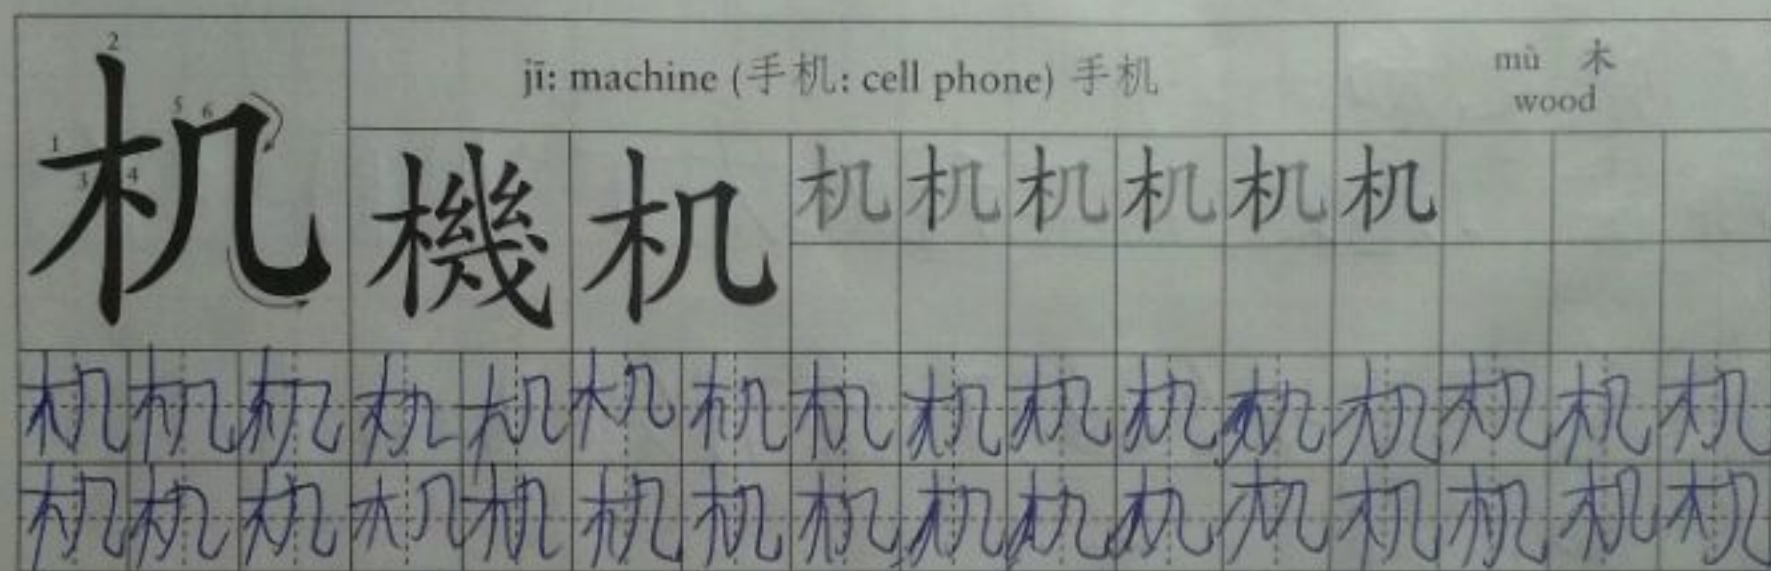 机
1 2 3 4 5 6
jī: machine (手机: cell phone) 手机
mù 木
wood
機 机 机 机 机 机 机 机
机 机 机 机 机 机 机 机 机 机 机 机 机 机 机 机
机 机 机 机 机 机 机 机 机 机 机 机 机 机 机 机